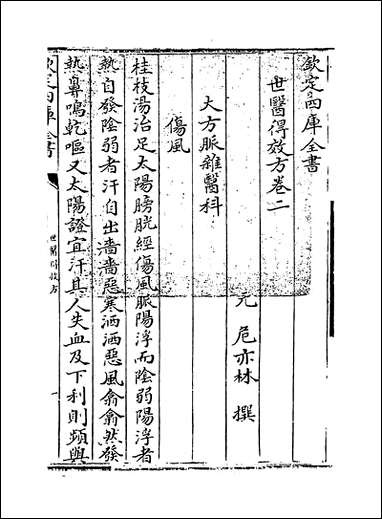 欽定四庫全書
世醫得效方卷二
元 危亦林 撰
大方脈雜醫科
傷風
桂枝湯治足太陽膀胱經傷風脈陽浮而陰弱陽浮者
熱自發陰弱者汗自出嗇嗇惡寒洒洒惡風翕翕然發
熱鼻鳴乾嘔又太陽證宜汗其人失血及下利則頻與
欽定四庫全書
世醫得效方
一